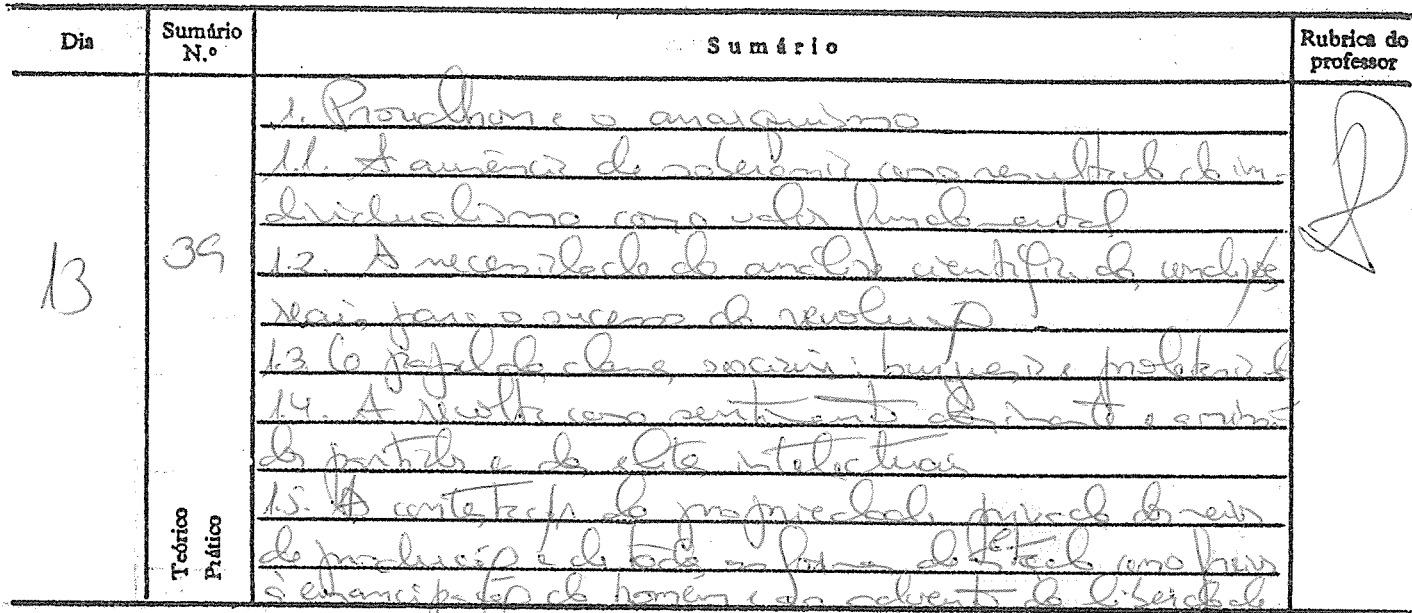 Dia
Sumário N.º
Sumário
Rubrica do professor
13
39
Teórico
Prático
1. Proudhon e o anarquismo
1.1. A ausência de soberania como resultado do in-
dividualismo como valor fundamental
1.2. A necessidade da análise científica das condições
reais para o sucesso da revolução
1.3. O papel das classes sociais: burguesia e proletariado
1.4. A revolta como sentimento dominante e
dos partidos e das elites intelectuais
1.5. A contestação da propriedade privada dos meios
de produção e de todas as formas de Estado como freios
à emancipação do homem e do advento da liberdade